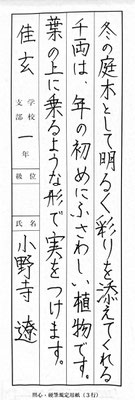 冬の庭木として明るく彩りを添えてくれる
千両は、年の初めにふさわしい植物です。
葉の上に乗るような形で実をつけます。
佳玄
学校
支部
一年
級位
氏名
小野寺遼
照心・硬筆鑑定用紙(3行)